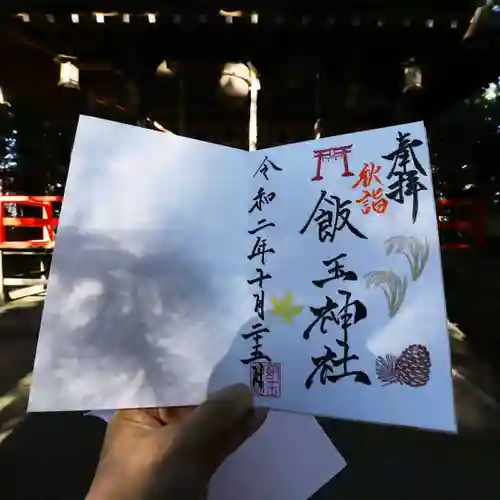 奉拝
秋詣
飯玉神社
令和二年十月二十五日